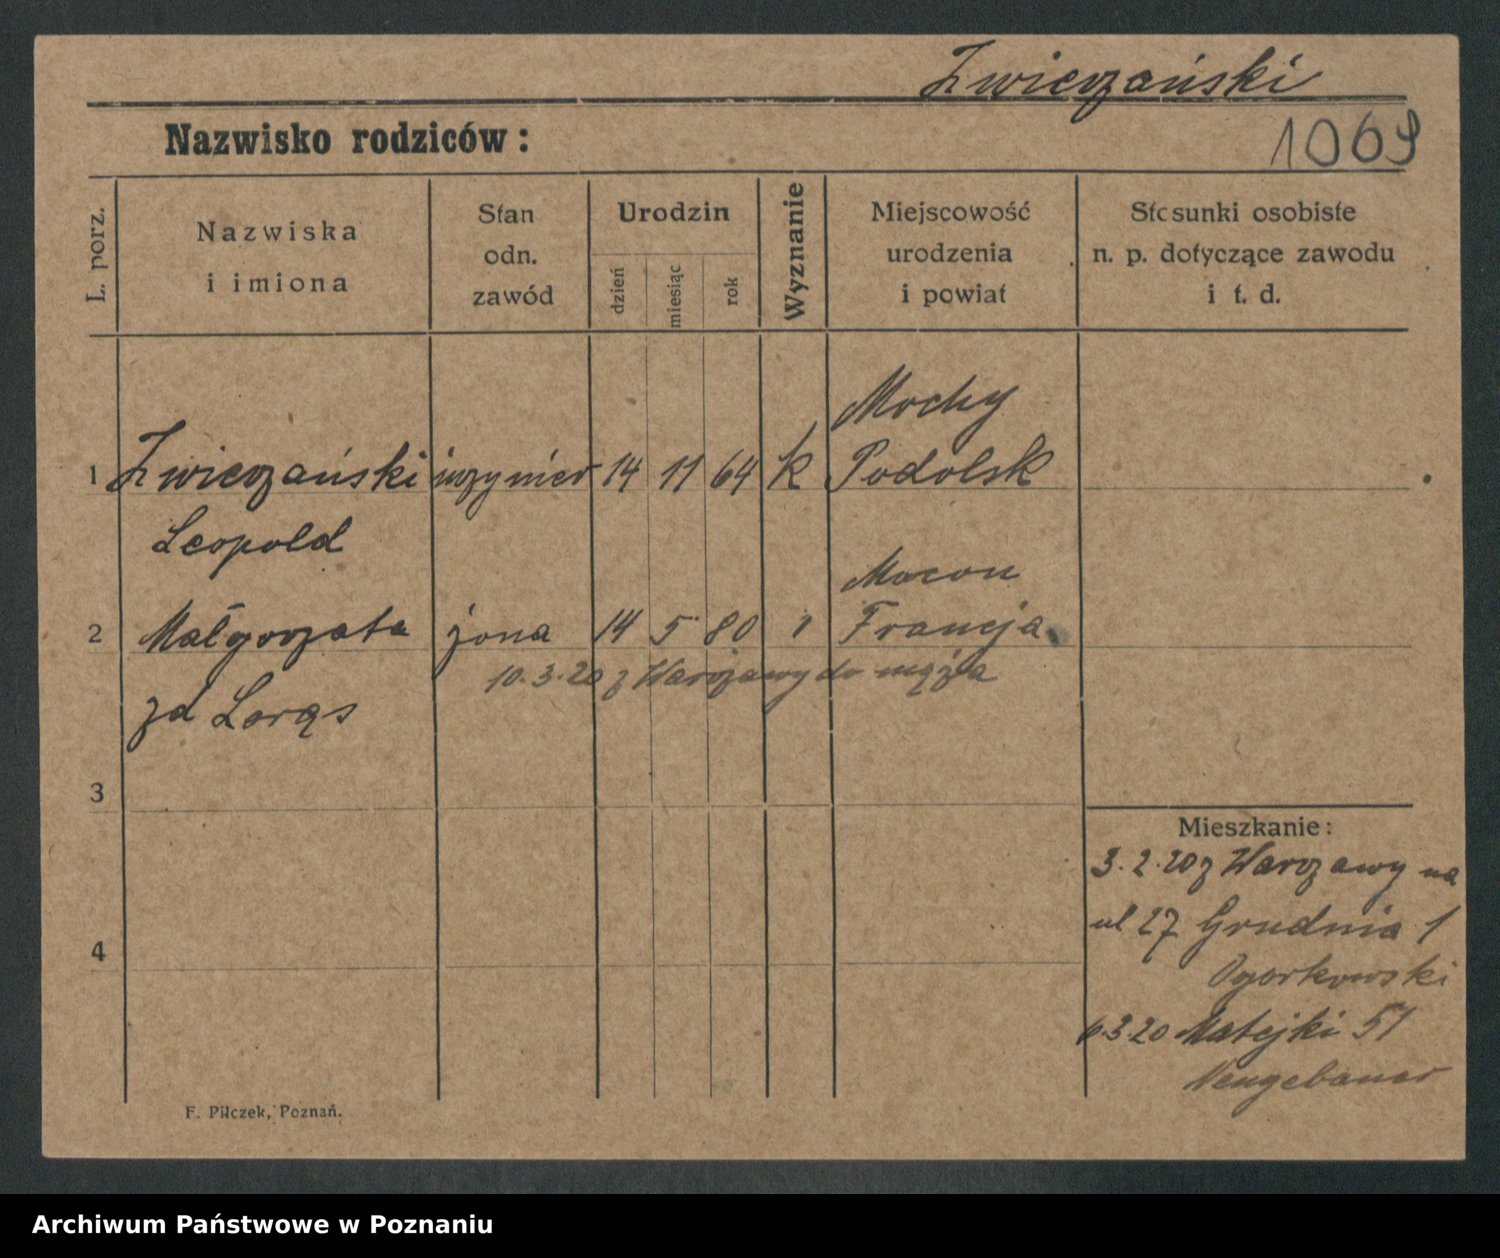 Zwierzański
Nazwisko rodziców:
1069
L. porz.
Nazwiska
i imiona
Stan
odn.
zawód
Urodzin
dzień
miesiąc
rok
Wyznanie
Miejscowość
urodzenia
i powiat
Stosunki osobiste
n. p. dotyczące zawodu
i t. d.
Mochy
1 Zwierzański inżynier 14 11 64 k Podolsk
Leopold
Macon
2 Małgorzata żona 14 5 80 " Francja
10.3.20 z Warszawy do męża
zd
3
Mieszkanie:
3.2.20 z Warszawy na
ul 27 Grudnia 1
Ogorkowski
4
6.3.20 Matejki 51
Neugebauer
F. Pilczek, Poznań.
Archiwum Państwowe w Poznaniu